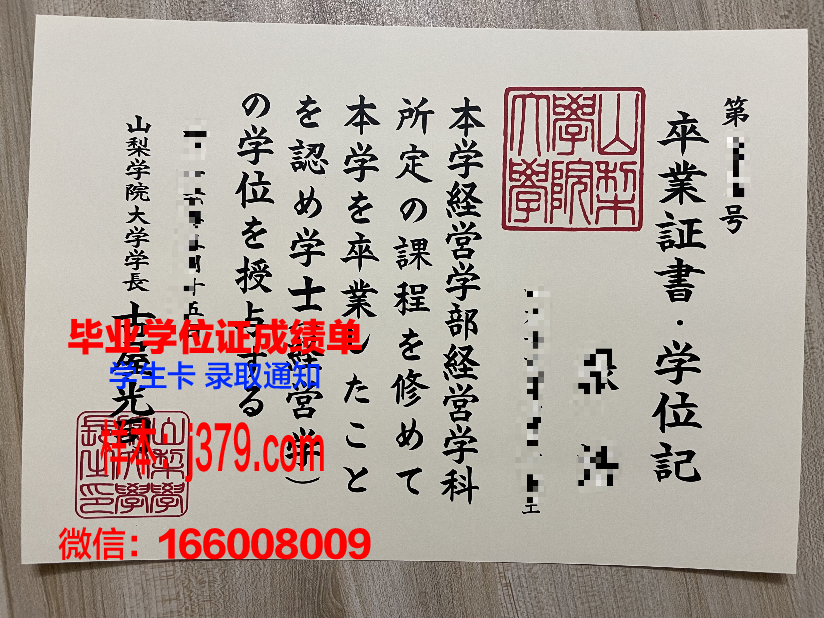 第 号
卒業証書・学位記
山梨
學院
大學
本学経営学部経営学科
所定の課程を修めて
本学を卒業したこと
を認め学士（経営学）
の学位を授与する
山梨学院大学学長
毕业学位证成绩单
学生卡 录取通知
样本：j379.com
微信：166008009